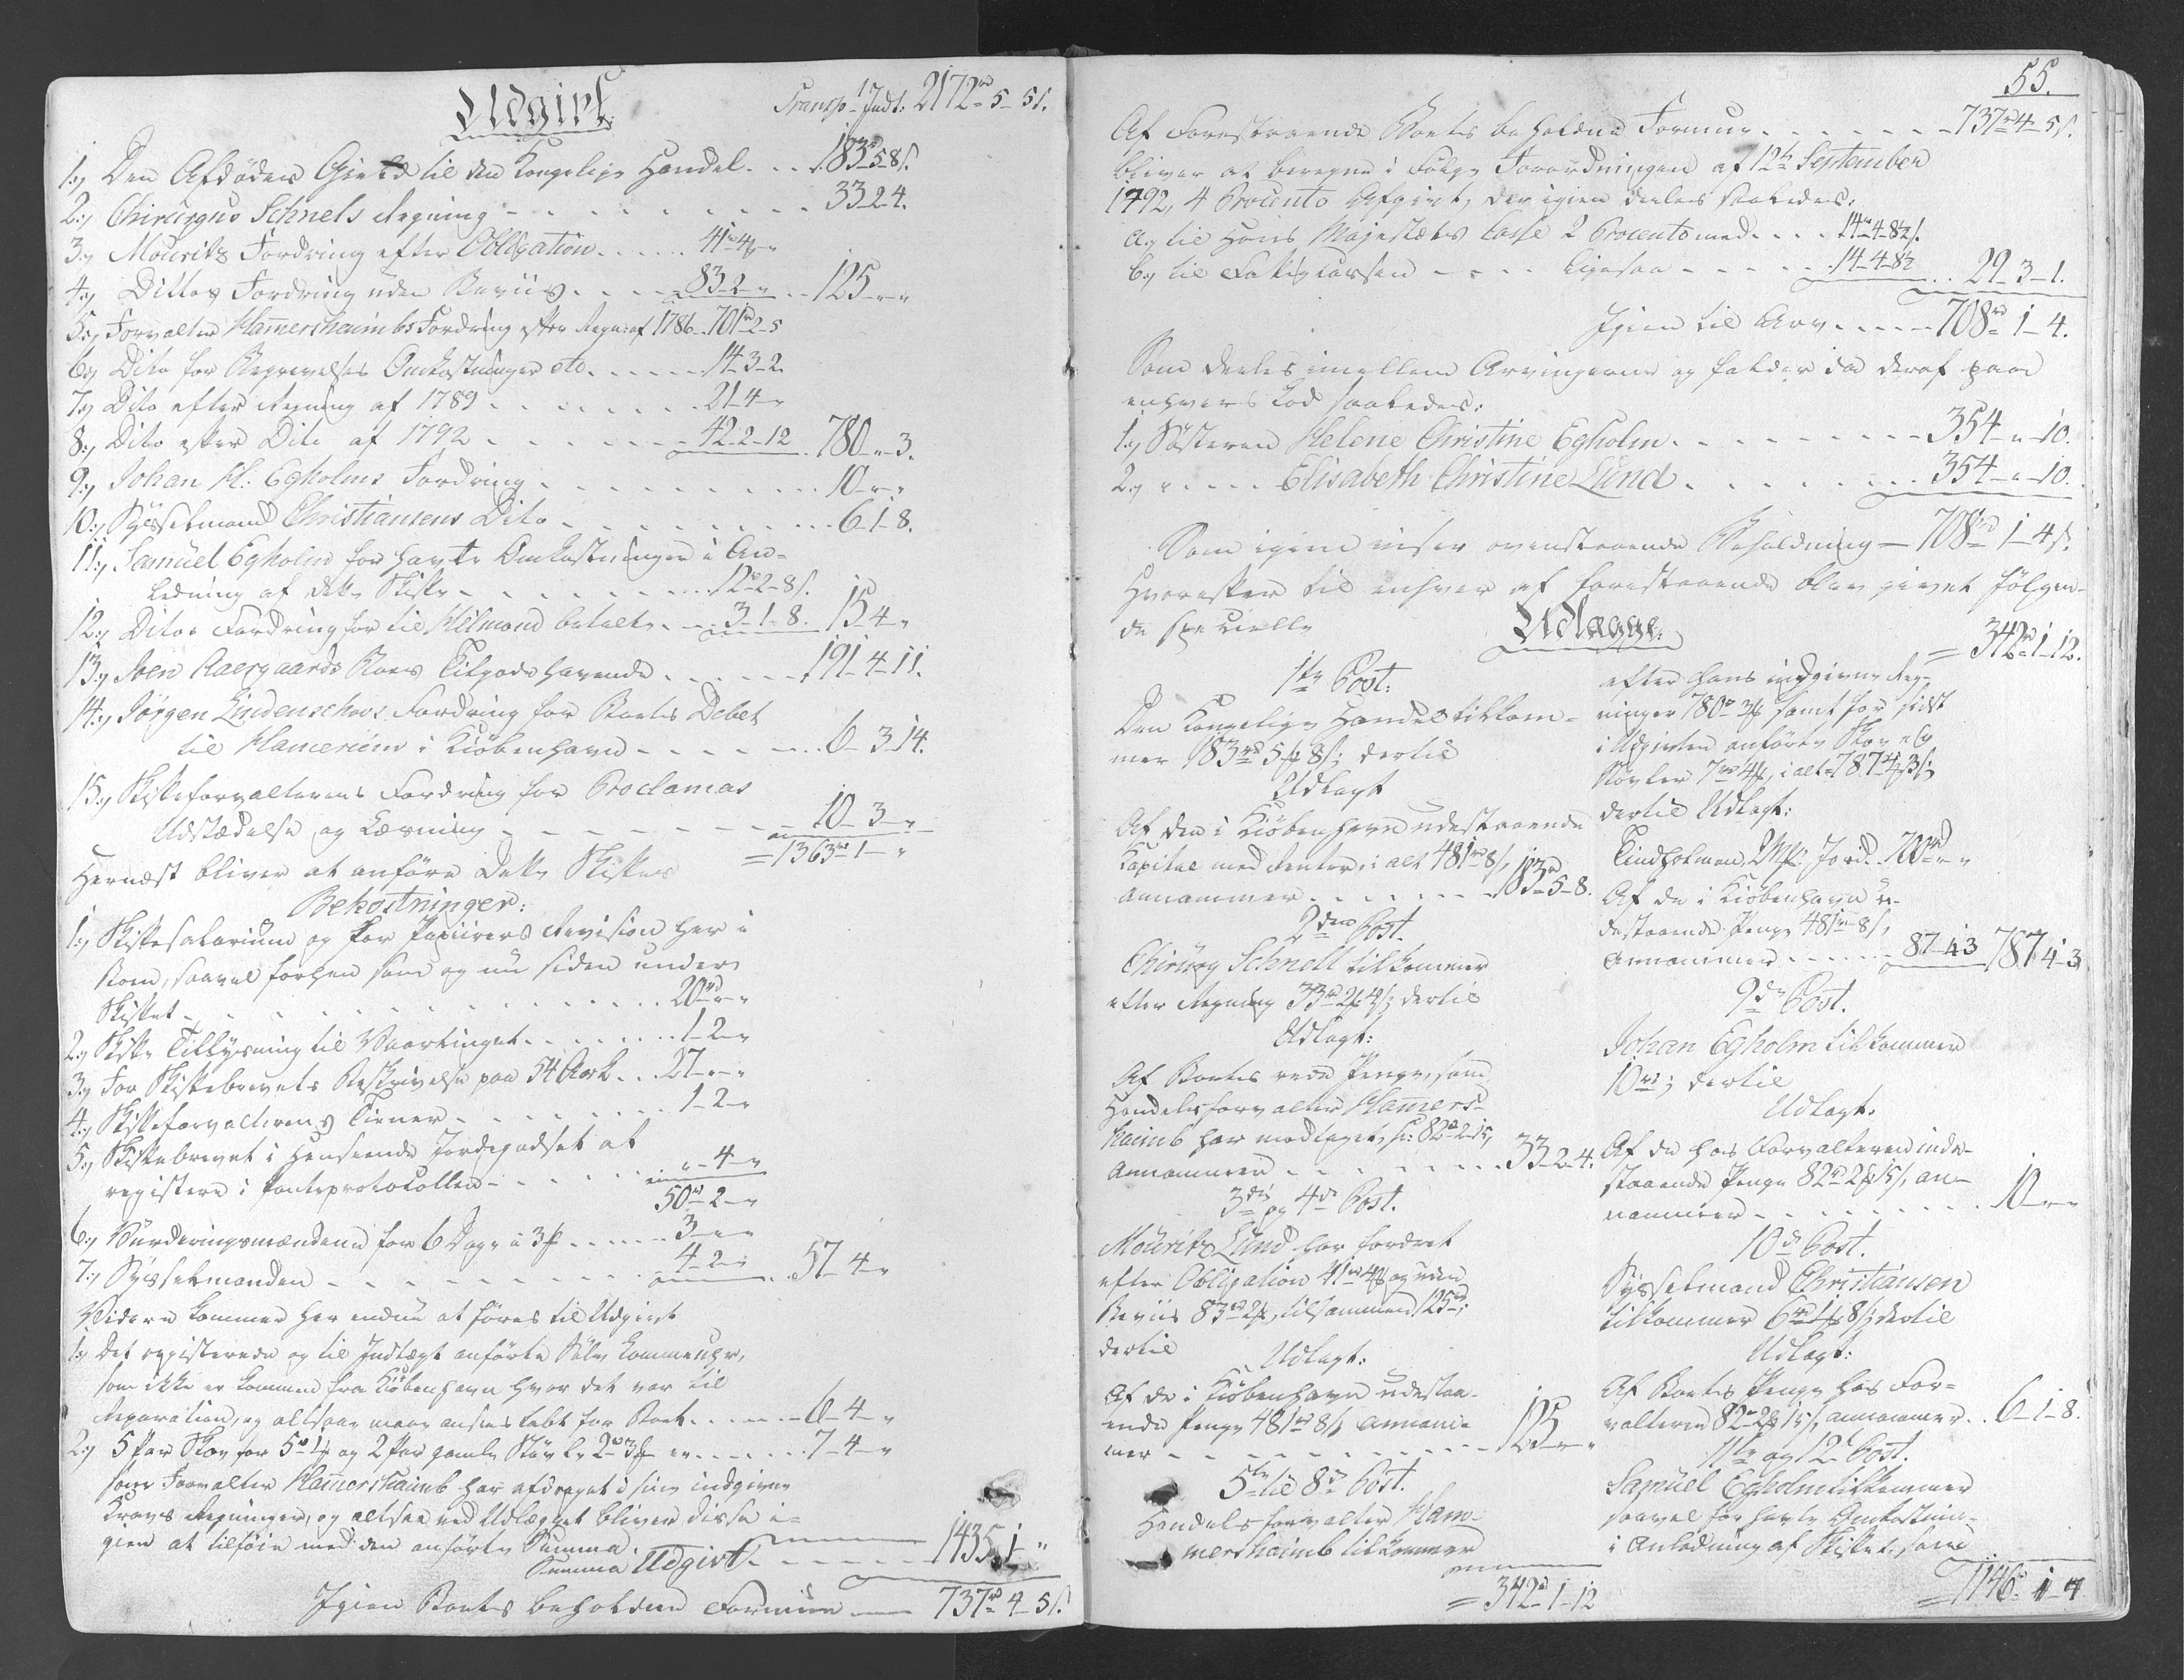 Udgivt.
Transp. Indt: 2172 rd 5 - 5 s.
1.) Den Afdödes Gield til den Kongelige Handel. . . 183 - 5 - 8 s.
2.) Chirurgus Schnels Regning - - - - 33 - 2 - 4.
3.) Mouritz Fordring efter Obligation. . . . . 41 rd - 4 -
4.) Dittos Fordring uden Beviis. . . . . 83 - 2 - " . . 125 - " - "
5.) Forvalter Hamershaimbs Fordring efter Regn: af 1786. 701 rd - 2 - 5
6.) Dito for Begravelses Omkostninger etc. . . . . 14 - 3 - 2.
7.) Dito efter Regning af 1789 . . . . . . 21 - 4 - "
8.) Dito efter Dito af 1792 . . . . . 42 - 2 - 12. 780 - " - 3.
9.) Johan H: Egholms Fordring. . . . . . . 10 - " - "
10.) Sysselmand Christiansens Dito. . . . . . . 6 - 1 - 8.
11.) Samuel Egholm for havte Omkostninger i An=
ledning af dette Skifte. . . . . . 12 - 2 - 8 s.
12.) Ditos Fordring for til Hilmond betalt. . . 3 - 1 - 8. 15 - 4 - "
13.) Joen Aaergaards Boes Tilgodehavende . . . . . 191 - 4 - 11.
14.) Jörgen Lindenschous Fordring for Boets Debet
til Hameriim i Kiöbenhavn - - - - - . . 6 - 3 - 14.
15.) Skifteforvalterens Fordring for Proclamas
Udstædelse og Læsning - - - - - - 10 - 3 - "
= 1363 rd - 1 - "
Hernæst bliver at anföre dette Skiftes
Bekostninger:
1.) Skiftesalarium og for Papiirers Revision her i
Boen, saavel forhen som og nu siden under
Skiftet - . . . . . . . 20 rd - " - "
2.) Skifte Tillysning til Vaartinget . . . . . . . 1 - 2 - "
3.) For Skiftebrevets Beskrivelse paa 54 Ark. . . 27 - " - "
4.) Skifteforvalterens Tiener - . . . . . . 1 - 2 - "
5.) Skiftebrevet i Henseende Jordegodset at
registrere i Panteprotocollen - . . . . " - 4 - "
50 rd - 2 - "
6.) Vurderingsmændene for 6 Dage a 3 f . . . . . . 3 - " - "
7.) Sysselmanden - - - - - . . . 4 - 2 - " . . 57 - 4 - "
Videre kommer her endnu at föres til Udgivt
1.) Det registerede og til Indtægt anförte Sölv
som ikke er kommen fra Kiöbenhavn hvor det var til
Reparation, og altsaa maae ansees tabt for Boet. . . . . . 6 - 4 - "
2.) 5 Par Skoe for 5 rd 1 f og 2 Par gamle Stövler 2 rd 3 f er. . . . . . 7 - 4 - "
som Forvalter Hamershaimb har afdraget i sine indgivne
Kravs Regninger, og altsaa ved Udlægget bliver disse i=
gien at tilföie med den anförte Summa.
Summa Udgivt. - - - - - - 1435 - 1 - "
Igien Boets beholdne Formue — 737 rd - 4 - 5 s.
55.
Af Forestaaende Boets beholdne Formue. - - - - - - 737 rd 4 - 5 s.
bliver at beregne i Fölge Forordningen af 12te September
1792, 4 Procento Afgivt, der igien deeles saaledes.
a.) til Hans Majestæts Casse 2 Procento med . . . . 14 rd - 4 - 8½ s.
b.) til Fattigkassen - - - - ligesaa - - - - - . 14 - 4 - 8½ . . 29 - 3 - 1.
Igien til Arv. . . . . 708 rd 1 - 4.
Som deeles imellem Arvingerne og falder da deraf paa
enhvers Lod saaledes:
1.) Sösteren Helene Christine Egholm. - - - - - - 354 - " - 10.
2.) " - . . . . Elisabeth Christine Lund . . . . . . . . 354 - " - 10.
Som igien viser ovenstaaende Beholdning — 708 rd 1 - 4 s.
Hvorefter til enhver af forestaaende blev givet fölgen=
de specielle
Udlægge.
1te Post:
Den Kongelige Handel tilkom=
mer 183 rd 5 f 8 s; dertil
Udlagt
Af den i Kiöbenhavn udestaaende
Kapital med Renter, i alt 481 rd 8 s,
annammer . . . . . . . 183 - 5 - 8.
2den Post.
Chirurg Schnell tilkommer
efter Regning 33 rd 2 f 4 s; dertil
Udlagt:
Af Boets rede Penge, som
Handelsforvalter Hamers=
haimb har modtaget, 82 rd - 2 - 15,
annammer . . . . . . . 33 - 2 - 4.
3die og 4de Post.
Mouritz Lund har fordret
efter Obligation 41 rd 4 f og uden
Beviis 83 rd 2 f, tilsammen 125 rd;
dertil
Udlagt:
Af de i Kiöbenhavn udestaa=
ende Penge 481 rd 8 s annam=
mer - - - - - - - - 125 - " - "
5te til 8de Post.
Handelsforvalter Ham=
mershaimb tilkommer
= 342 rd - 1 - 12
= 342 rd - 1 - 12.
efter hans indgivne Reg=
ninger 780 rd 3 s samt for sidst
i Udgivten anförte Skoe og
Stövler 7 rd 4 f, i alt 787 - 4 - 3 s;
dertil Udlagt:
Tindholmen Jord. 700 rd - " - "
Af de i Kiöbenhavn u=
destaaende Penge 481 rd 8 s,
annammer - - - - - - 87 - 4 - 3 787 - 4 - 3
9de Post.
Johan Egholm tilkommer
10 rd; dertil
Udlagt.
Af de hos Forvalteren inde=
staaende Penge 82 rd 2 f 15 s, an=
nammer - . . . . . . . . 10 - " - "
10de Post.
Sysselmand Christiansen
tilkommer 6 rd 1 f 8 s; dertil
Udlagt:
Af Boets Penge hos For=
valteren 82 rd 2 f 15 s, annammer. . 6 - 1 - 8.
11te og 12te Post.
Samuel Egholm tilkommer
saavel for havte Omkostning
i Anledning af Skiftet, som
= 1146 rd 1 - 7